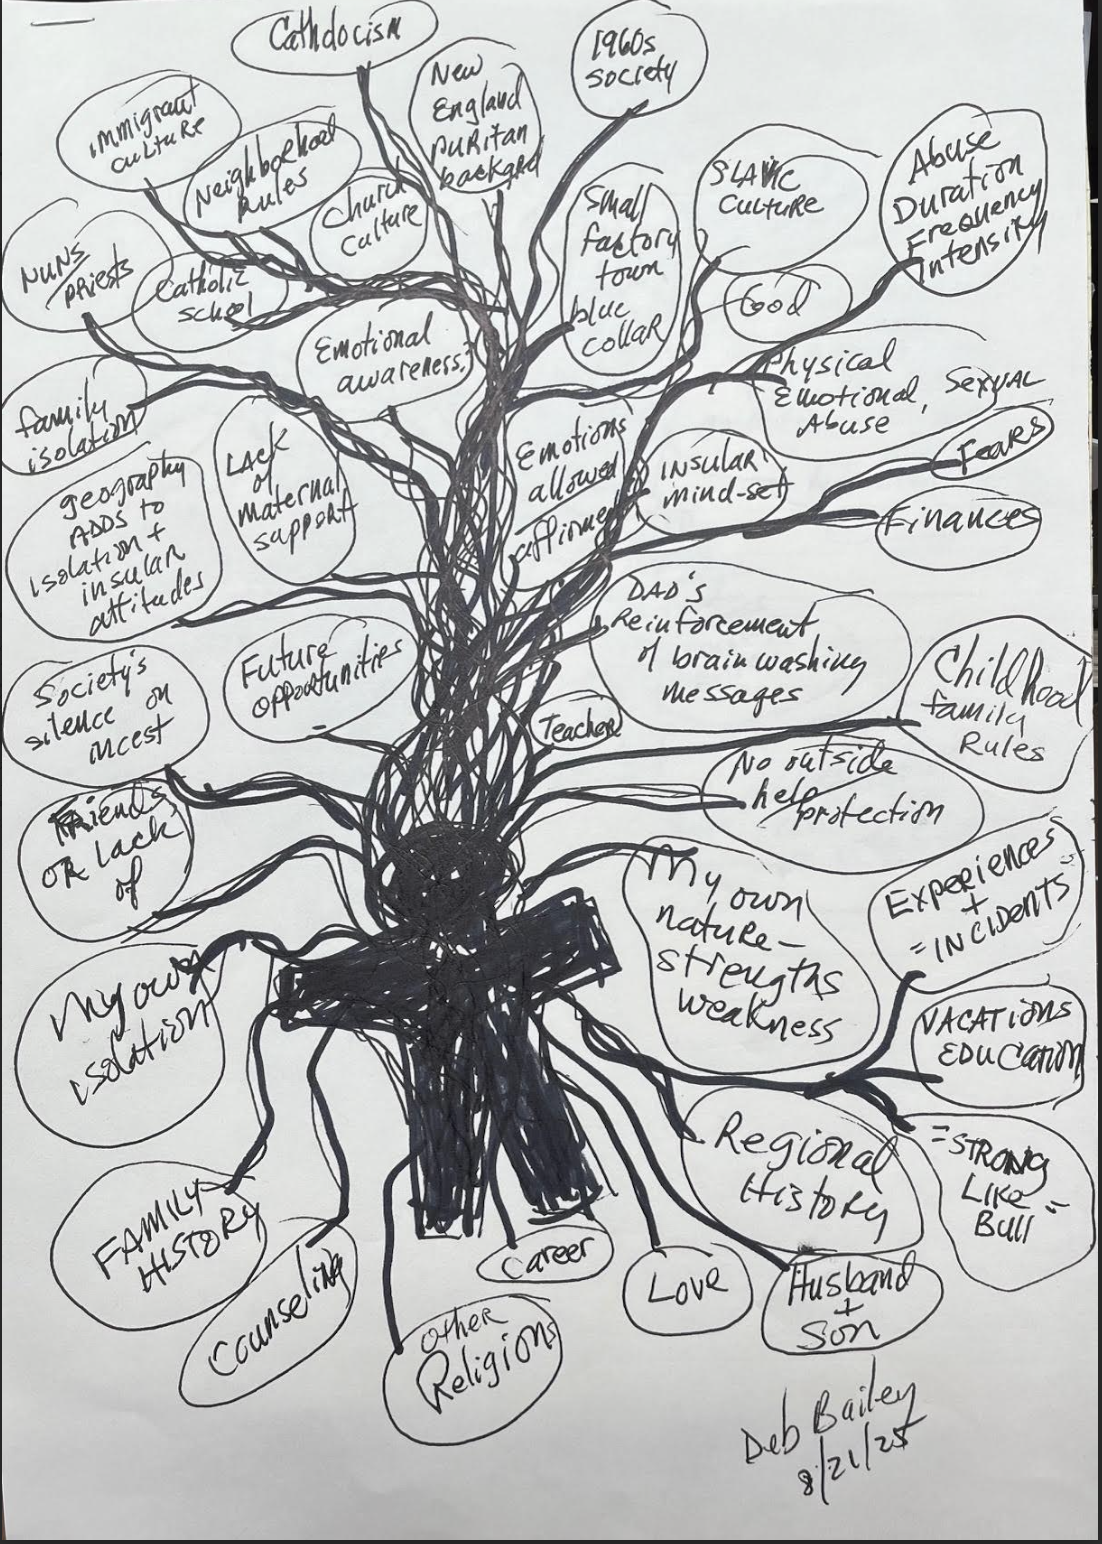 Cathdocism
1960s
society
New
England
Puritan
backgrd
immigrant
culture
Neighborhood
Rules
Church
Culture
Small
factory
town
blue
collar
SLAVIC
CULTURE
Abuse
Duration
Frequency
Intensity
NUNS/
priests
Catholic
school
Food
Emotional
awareness?
Physical
Emotional, Sexual
Abuse
family
isolation
Lack
of
maternal
support
Emotions
allowed
affirmed
INSULAR
mind-set
Fears
Finances
geography
ADDS to
isolation +
insular
attitudes
DAD's
Reinforcement
of brain washing
messages
Future
opportunities
Society's
silence on
incest
Teacher
Childhood
family
Rules
No outside
help/
protection
Friends
OR lack
of
My own
nature-
strengths
weakness
Experiences
+
=INCIDENTS
My own
isolation
VACATIONS
EDUCATION
Regional
History
=STRONG
LIKE
Bull=
FAMILY
HISTORY
Counseling
Career
Love
Husband
+
Son
other
Religions
Deb Bailey
8/21/25